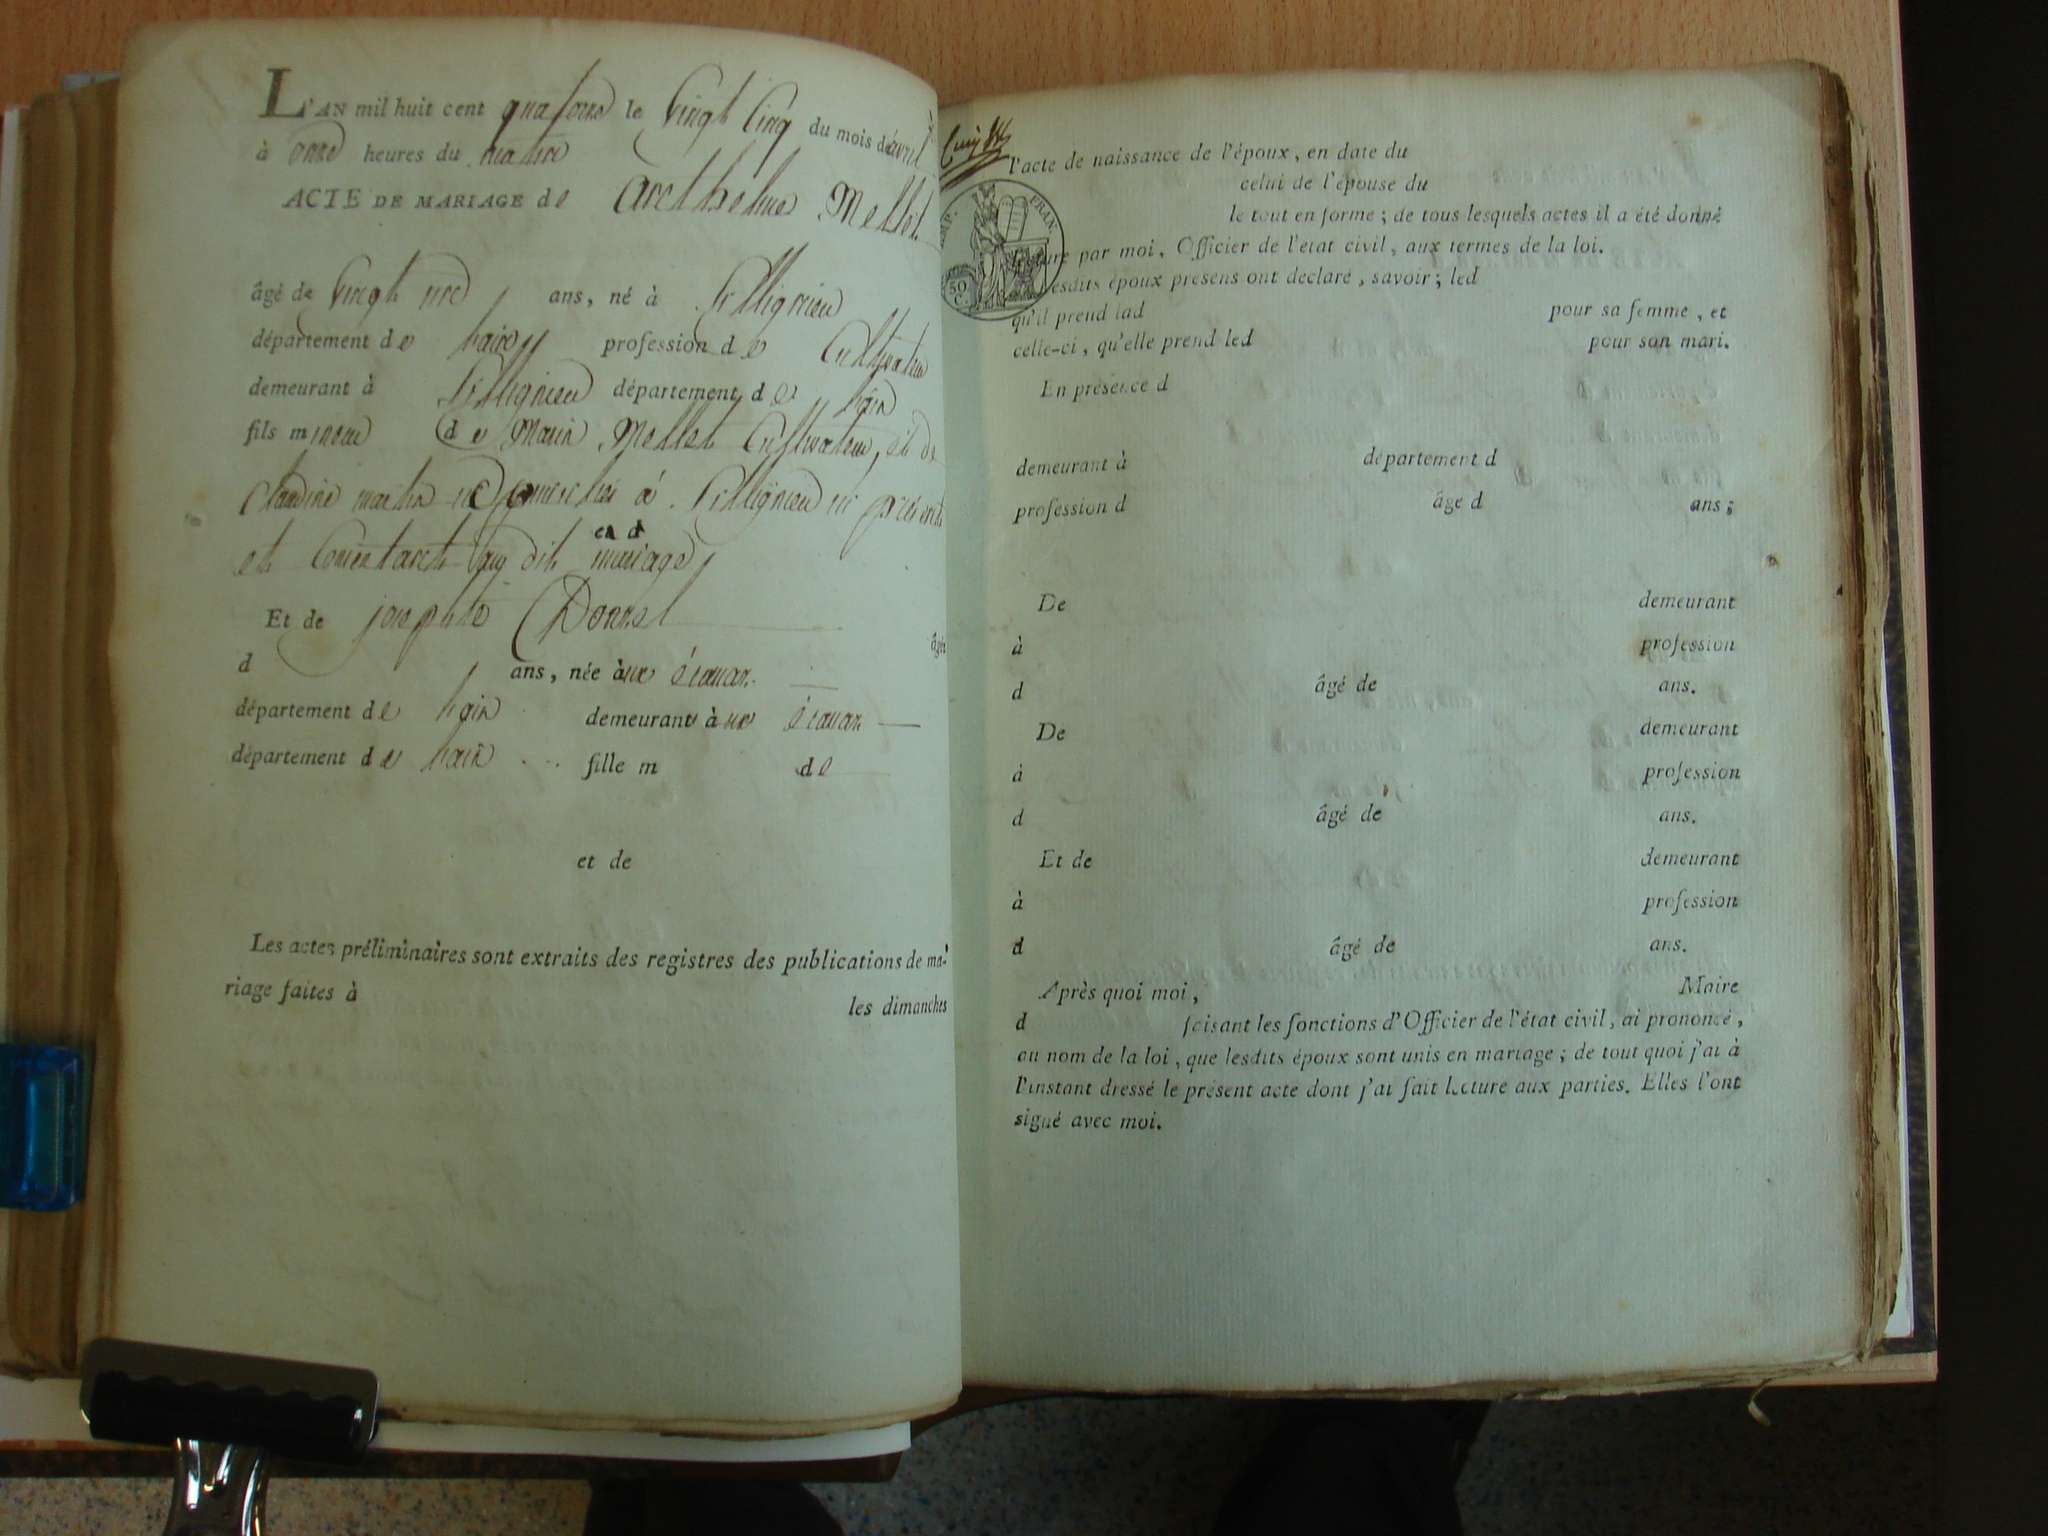 L'AN mil huit cent quatorze le vingt Cinq du mois de avril
à onze heures du matin
ACTE DE MARIAGE de Anthelme Mellet
âgé de vingt un ans, né à
département de lain profession de Cultivateur
demeurant à département de lain
fils mineur de Marin Mellet Cultivateur, et de
Claudine martin à
et dit mariage
Et de josephte
âgée
d ans, née à
département de lain demeurant à
département de lain fille m de
et de
Les actes préliminaires sont extraits des registres des publications de ma-
riage faites à les dimanches
l'acte de naissance de l'époux, en date du
celui de l'épouse du
le tout en forme ; de tous lesquels actes il a été donné
lecture par moi, Officier de l'état civil, aux termes de la loi.
Lesdits époux présens ont déclaré, savoir ; led
qu'il prend lad pour sa femme, et
celle-ci, qu'elle prend led pour son mari.
En présence d
demeurant à département d
profession d âge d ans ;
De demeurant
à profession
d âgé de ans.
De demeurant
à profession
d âgé de ans.
Et de demeurant
à profession
d âgé de ans.
Après quoi moi, Maire
d faisant les fonctions d'Officier de l'état civil, ai prononcé,
au nom de la loi, que lesdits époux sont unis en mariage ; de tout quoi j'ai à
l'instant dressé le présent acte dont j'ai fait lecture aux parties. Elles l'ont
signé avec moi.
FRAN.
50
C.